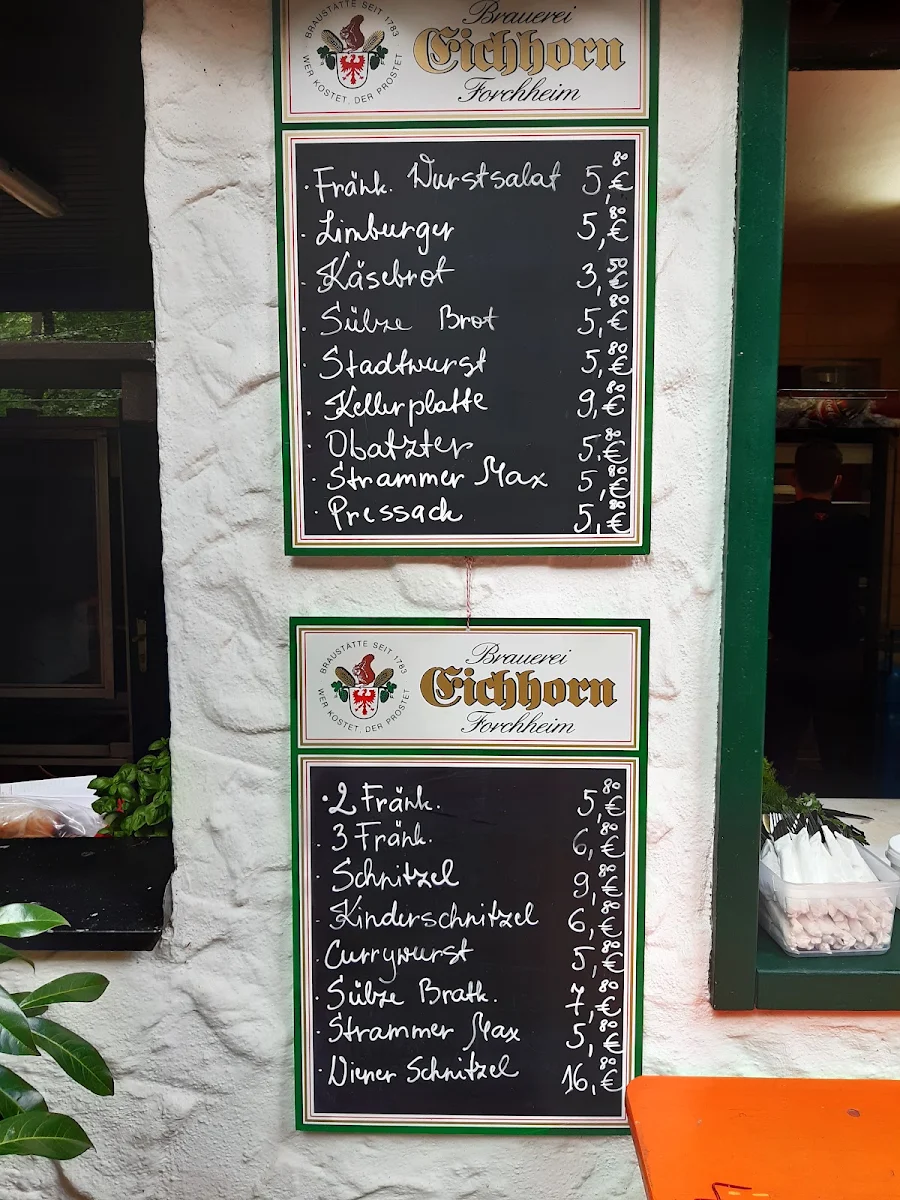 BRAUSTÄTTE SEIT 1783
WER KOSTET, DER PROSTET
Brauerei
Eichhorn
Forchheim
· Fränk. Wurstsalat 5,80€
· Limburger 5,80€
· Käsebrot 3,50€
· Sülze Brot 5,80€
· Stadtwurst 5,80€
· Kellerplatte 9,80€
· Obatzter 5,80€
· Strammer Max 5,80€
· Pressack 5,80€
BRAUSTÄTTE SEIT 1783
WER KOSTET, DER PROSTET
Brauerei
Eichhorn
Forchheim
· 2 Fränk. 5,80€
· 3 Fränk. 6,80€
· Schnitzel 9,80€
· Kinderschnitzel 6,80€
· Currywurst 5,80€
· Sülze Bratk. 7,80€
· Strammer Max 5,80€
· Wiener Schnitzel 16,80€